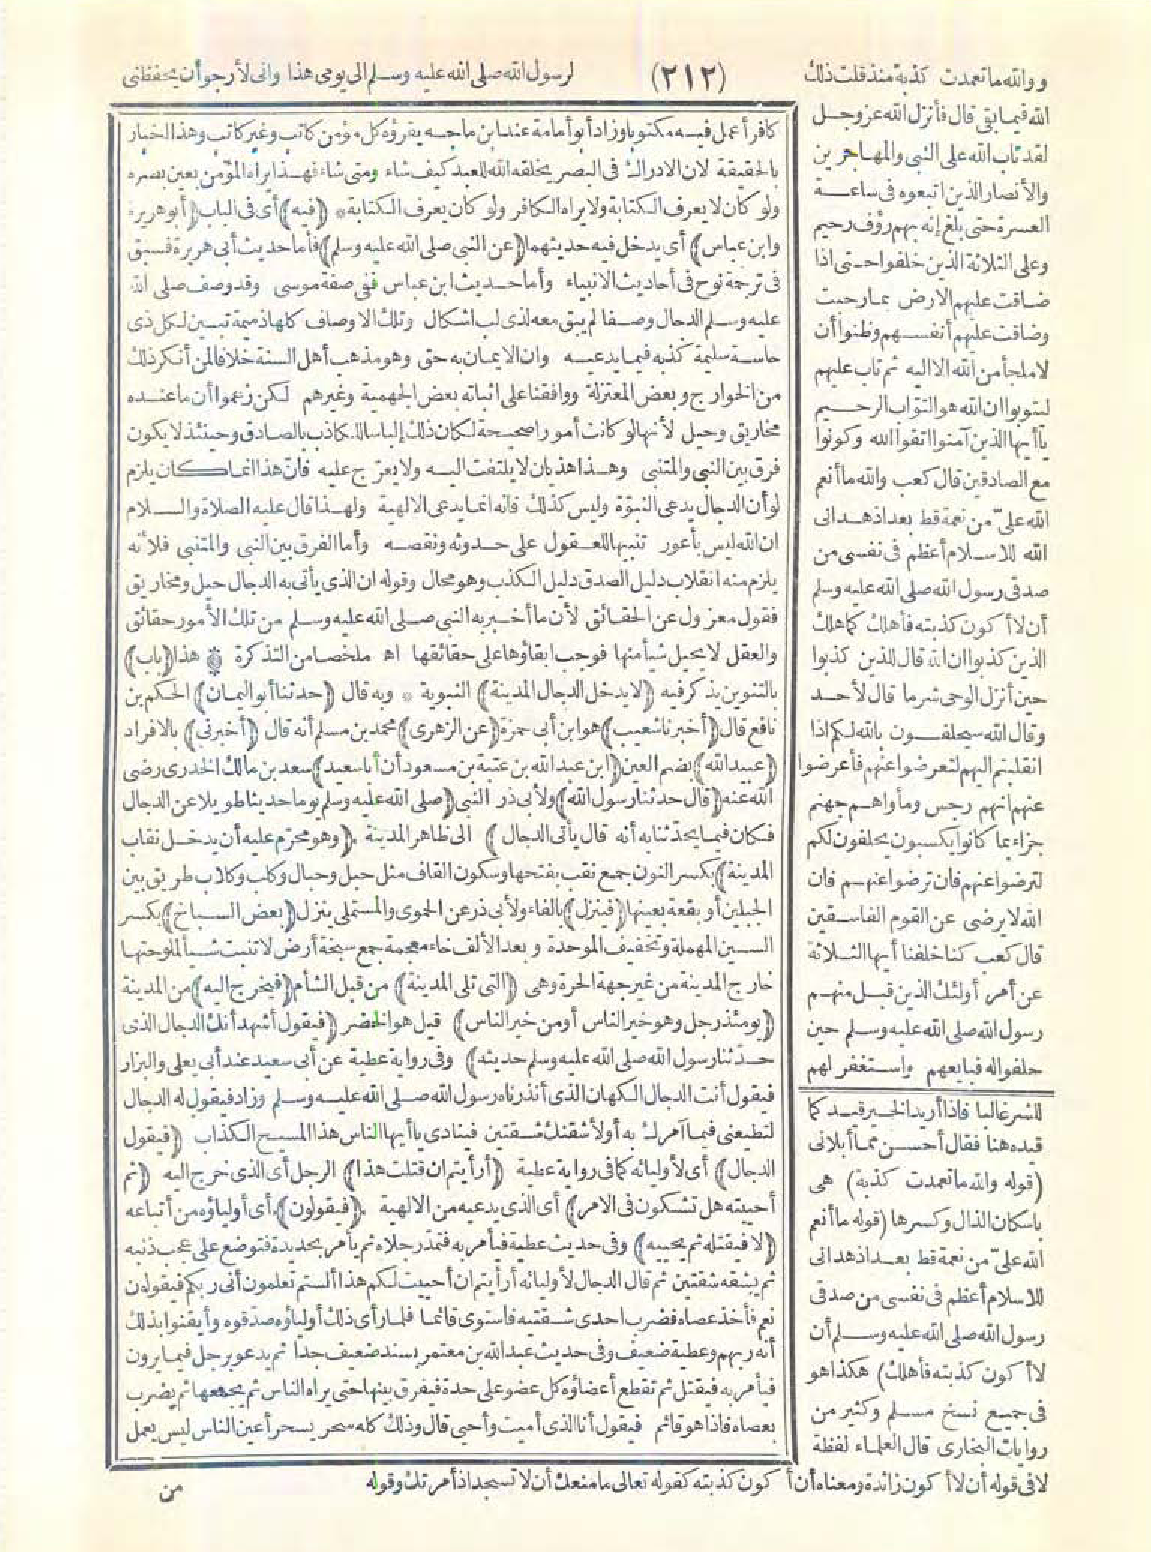 ووالله ما تعمدت كذبة منذ قلت ذلك (٢١٢) لرسول الله صلى الله عليه وسلم الى يومى هذا وانى لأرجو أن يحفظنى
الله فيما بقى قال فأنزل الله عز وجل
لقد تاب الله على النبى والمهاجرين
والأنصار الذين اتبعوه فى ساعة
العسرة حتى بلغ إنه بهم رؤف رحيم
وعلى الثلاثة الذين خلفوا حتى اذا
ضاقت عليهم الارض بما رحبت
وضاقت عليهم أنفسهم وظنوا أن
لا ملجأ من الله الا اليه ثم تاب عليهم
ليتوبوا ان الله هو التواب الرحيم
يا أيها الذين آمنوا اتقوا الله وكونوا
مع الصادقين قال كعب والله ما أنعم
الله علىّ من نعمة قط بعد اذ هدانى
الله للاسلام أعظم فى نفسى من
صدقى رسول الله صلى الله عليه وسلم
أن لا أكون كذبته فأهلك كما هلك
الذين كذبوا ان الله قال للذين كذبوا
حين أنزل الوحى شر ما قال لأحد
وقال الله سيحلفون بالله لكم اذا
انقلبتم اليهم لتعرضوا عنهم فأعرضوا
عنهم انهم رجس ومأواهم جهنم
جزاء بما كانوا يكسبون يحلفون لكم
لترضوا عنهم فان ترضوا عنهم فان
الله لا يرضى عن القوم الفاسقين
قال كعب كنا خلفنا أيها الثلاثة
عن أمر أولئك الذين قبل منهم
رسول الله صلى الله عليه وسلم حين
حلفوا له فبايعهم واستغفر لهم
للشر غالبا فاذا أريد الخير قيد كما
قيده هنا فقال أحسن مما أبلانى
(قوله والله ما تعمدت كذبة) هى
باسكان الذال وكسرها (قوله ما أنعم
الله علىّ من نعمة قط بعد اذ هدانى
للاسلام أعظم فى نفسى من صدقى
رسول الله صلى الله عليه وسلم أن
لا أكون كذبته فأهلك) هكذا هو
فى جميع نسخ مسلم وكثير من
روايات البخارى قال العلماء لفظة
لا فى قوله أن لا أكون زائدة ومعناه أن أكون كذبته كقوله تعالى ما منعك أن لا تسجد اذ أمرتك وقوله
كافر أعمل فيه مكتوبا وزاد أبو أمامة عند ابن ماجه يقرؤه كل مؤمن كاتب وغير كاتب وهذا اخبار
بالحقيقة لان الادراك فى البصر يخلقه الله للعبد كيف شاء ومتى شاء فهذا يراه المؤمن بعين بصره
ولو كان لا يعرف الكتابة ولا يراه الكافر ولو كان يعرف الكتابة * (فيه) أى فى الباب (أبو هريرة
وابن عباس) أى يدخل فيه حديثهما (عن النبى صلى الله عليه وسلم) فأما حديث أبى هريرة فسبق
فى ترجمة نوح فى أحاديث الانبياء وأما حديث ابن عباس ففى صفة موسى وقد وصف صلى الله
عليه وسلم الدجال وصفا لم يبق معه لذى لب اشكال وتلك الاوصاف كلها ذميمة تبين لكل ذى
حاسة سليمة كذبه فيما يدعيه وان الايمان به حق وهو مذهب أهل السنة خلافا لمن أنكر ذلك
من الخوارج وبعض المعتزلة ووافقنا على اثباته بعض الجهمية وغيرهم لكن زعموا أن ما عنده
مخاريق وحيل لأنها لو كانت أمورا صحيحة لكان ذلك إلباسا للكاذب بالصادق وحينئذ لا يكون
فرق بين النبى والمتنبى وهذا هذيان لا يلتفت اليه ولا يعرّج عليه فان هذا انما كان يلزم
لو أن الدجال يدعى النبوّة وليس كذلك فانه انما يدعى الالهية ولهذا قال عليه الصلاة والسلام
ان الله ليس بأعور تنبيها للعقول على حدوثه ونقصه وأما الفرق بين النبى والمتنبى فلأنه
يلزم منه انقلاب دليل الصدق دليل الكذب وهو محال وقوله ان الذى يأتى به الدجال حيل ومخاريق
فقول معزول عن الحقائق لأن ما أخبر به النبى صلى الله عليه وسلم من تلك الأمور حقائق
والعقل لا يحيل شيأ منها فوجب ابقاؤها على حقائقها اه ملخصا من التذكرة * هذا (باب)
بالتنوين يذكر فيه (لا يدخل الدجال المدينة) النبوية * وبه قال (حدثنا أبو اليمان) الحكم بن
نافع قال (أخبرنا شعيب) هو ابن أبى حمزة (عن الزهرى) محمد بن مسلم أنه قال (أخبرنى) بالافراد
(عبيد الله) بضم العين (ابن عبد الله بن عتبة بن مسعود أن أبا سعيد) سعد بن مالك الخدرى رضى
الله عنه (قال حدثنا رسول الله) ولأبى ذر النبى (صلى الله عليه وسلم يوما حديثا طويلا عن الدجال
فكان فيما يحدّثنا به أنه قال يأتى الدجال) الى ظاهر المدينة (وهو محرّم عليه أن يدخل نقاب
المدينة) بكسر النون جمع نقب بفتحها وسكون القاف مثل حبل وحبال وكلب وكلاب طريق بين
الجبلين أو بقعة بعينها (فينزل) بالفاء ولأبى ذر عن الحموى والمستملى ينزل (بعض السباخ) بكسر
السين المهملة وتخفيف الموحدة وبعد الألف خاء معجمة جمع سبخة أرض لا تنبت شيأ لملوحتها
خارج المدينة من غير جهة الحرة وهى (التى تلى المدينة) من قبل الشأم (فيخرج اليه) من المدينة
(يومئذ رجل وهو خير الناس أو من خير الناس) قيل هو الخضر (فيقول أشهد أنك الدجال الذى
حدّثنا رسول الله صلى الله عليه وسلم حديثه) وفى رواية عطية عن أبى سعيد عند أبى يعلى والبزار
فيقول أنت الدجال الكهان الذى أنذرناه رسول الله صلى الله عليه وسلم وزاد فيقول له الدجال
لتطيعنى فيما آمرك به أو لأشقنك شقتين فينادى يا أيها الناس هذا المسيح الكذاب (فيقول
الدجال) أى لأوليائه كما فى رواية عطية (أرأيتم ان قتلت هذا) الرجل أى الذى خرج اليه (ثم
أحييته هل تشكون فى الامر) أى الذى يدعيه من الالهية (فيقولون) أى أولياؤه من أتباعه
(لا فيقتله ثم يحييه) وفى حديث عطية فيأمر به فتمد رجلاه ثم يأمر بحديدة فتوضع على عجب ذنبه
ثم يشقه شقتين ثم قال الدجال لأوليائه أرأيتم ان أحييت لكم هذا ألستم تعلمون أنى ربكم فيقولون
نعم فأخذ عصاه فضرب احدى شقتيه فاستوى قائما فلما رأى ذلك أولياؤه صدّقوه وأيقنوا بذلك
أنه ربهم وعطية ضعيف وفى حديث عبد الله بن معتمر بسند ضعيف جدا ثم يدعو برجل فيما يرون
فيأمر به فيقتل ثم تقطع أعضاؤه كل عضو على حدة فيفرق بينها حتى يراه الناس ثم يجمعها ثم يضرب
بعصاه فاذا هو قائم فيقول أنا الذى أميت وأحيى قال وذلك كله سحر يسحر أعين الناس ليس يعمل
من